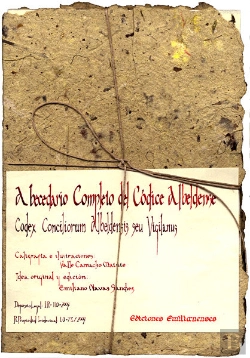 Abecedario Completo del Códice Albeldense
Codex Conciliorum Albeldensis seu Vigilanus
Caligrafía e ilustraciones
Idea original y edición:
Emiliano Navas Sánchez
Depósito Legal
Propiedad Intelectual
Ediciones Emilianenses